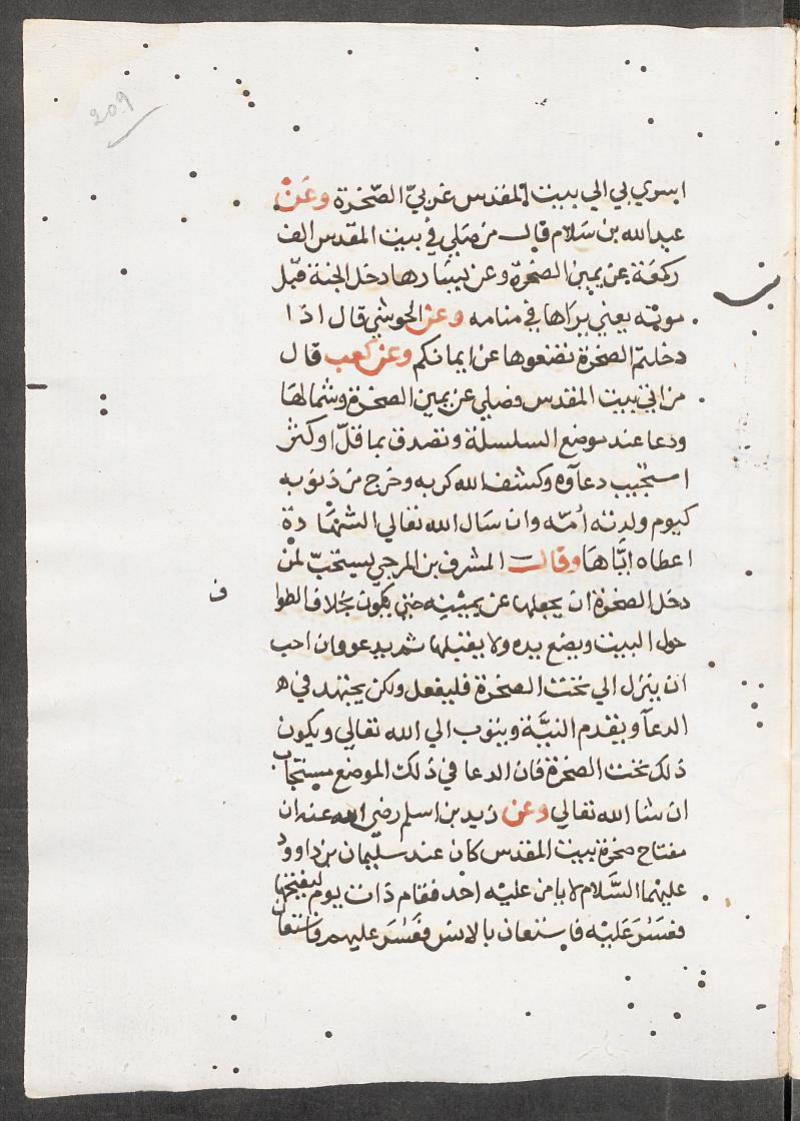 209
اسري بي الي بيت المقدس عن يمين الصخرة وعن
عبد الله بن سلام قال من صلي في بيت المقدس الف
ركعة عن يمين الصخرة وعن يسارها دخل الجنة قبل
موته يعني يراها في منامه وعن الحوشي قال اذا
دخلتم الصخرة فضعوها عن ايمانكم وعن كعب قال
من اتي بيت المقدس وصلي عن يمين الصخرة وشمالها
ودعا عند موضع السلسلة وتصدق بما قلّ او كثر
استجيب دعاؤه وكشف الله كربه وخرج من ذنوبه
كيوم ولدته أمّه وان سال الله تعالي الشهادة
اعطاه ايّاها وقال المشرف بن المرجي يستحبّ لمن
دخل الصخرة ان يجعلها عن يمينه حتي يكون بخلاف الطوا
ف
حول البيت ويضع يده ولا يقبلها ثم يدعو وان احب
ان ينزل الي تحت الصخرة فليفعل ولكن يجتهد في ه
الدعا ويقدم النيّة ويتوب الي الله تعالي ويكون
ذلك تحت الصخرة فان الدعا في ذلك الموضع مستجاب
ان شا الله تعالي وعن زيد بن اسلم رضي الله عنه ان
مفتاح صخرة بيت المقدس كان عند سليمان بن داوود
عليهما السّلام لا يامن عليه احد فقام ذات يوم ليفتحها
فعسر عليه فاستعان بالانس فعسر عليهم فاستعان